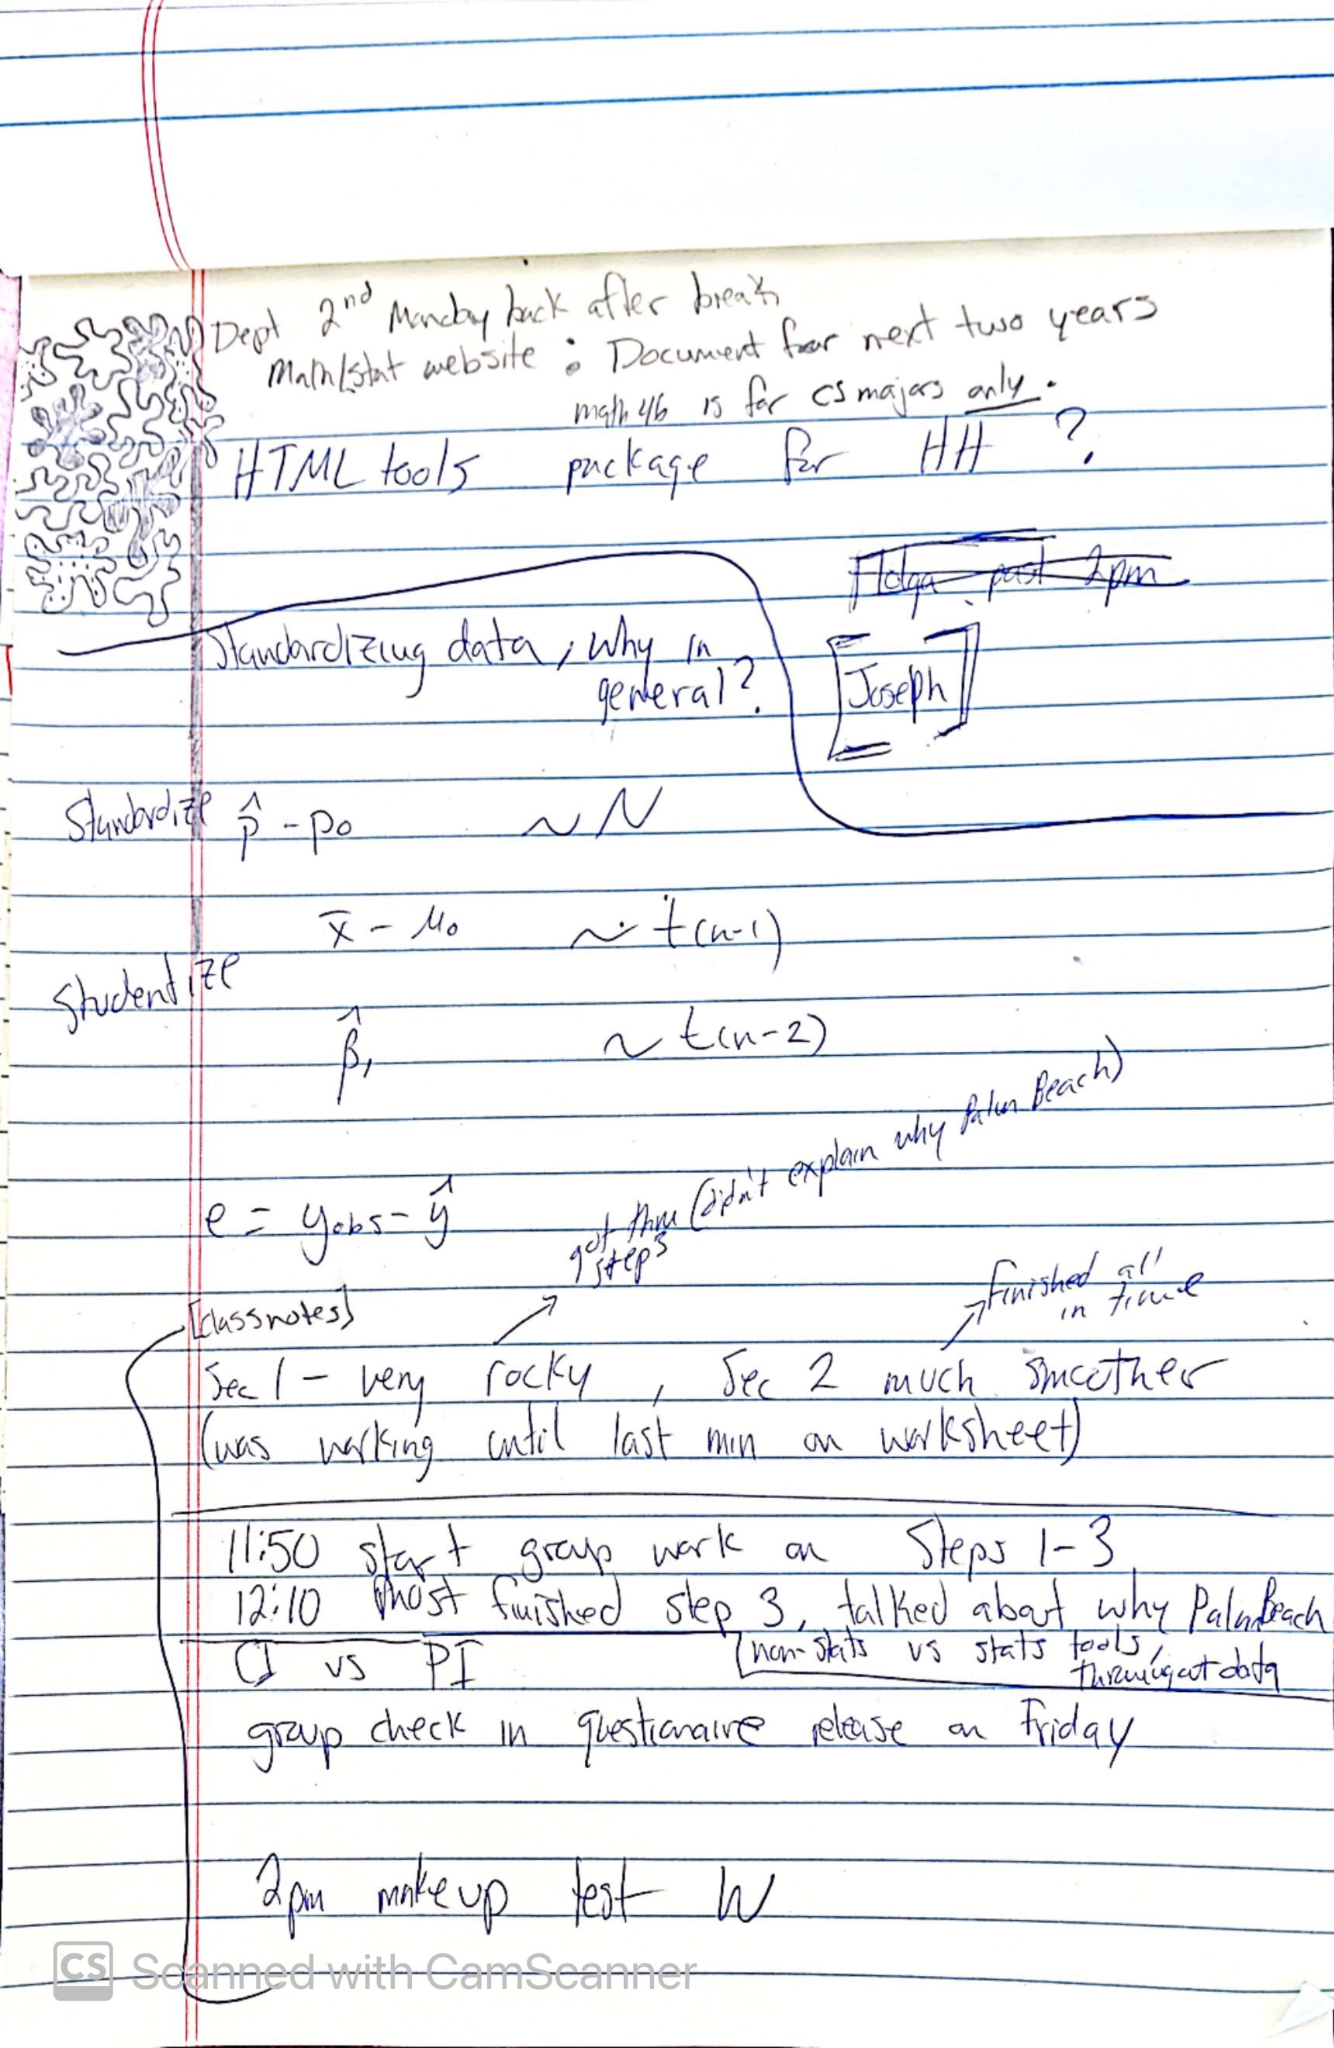 Dept 2nd Monday back after break
Math/stat website : Document for next two years
math 46 is for CS majors only.
HTML tools package for HH ?
Helga past 2pm
Standardizing data, Why in
general?
[Joseph]
Standardize p̂ - p₀ ~ N
x̄ - μ₀ ~ t(n-1)
Studentize
β̂₁ ~ t(n-2)
got thru (didn't explain why Palm Beach)
step 3
e = yobs - ŷ
Finished all
in time
[classnotes]
Sec 1 - very rocky , Sec 2 much smoother
(was working until last min on worksheet)
11:50 start group work on Steps 1-3
12:10 Most finished step 3, talked about why Palm Beach
non-stats vs stats tools,
throwing out data
CI vs PI
group check in questionaire release on Friday
2pm makeup test W
CS Scanned with CamScanner